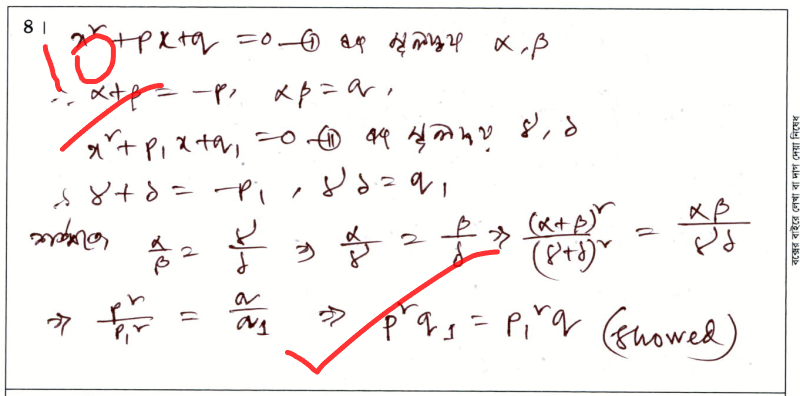 8।
x² + px + q = 0 —(i) এর মূলদ্বয় α, β
10
∴ α+β = -p, αβ = q,
x² + p₁x + q₁ = 0 —(ii) এর মূলদ্বয় γ, δ
∴ γ + δ = -p₁, γδ = q₁
শর্তমতে α/β = γ/δ ⇒ α/γ = β/δ ⇒ (α+β)²/(γ+δ)² = αβ/γδ
⇒ p²/p₁² = q/q₁ ⇒ p²q₁ = p₁²q (showed)
বক্সের বাইরে লেখা বা দাগ দেয়া নিষেধ